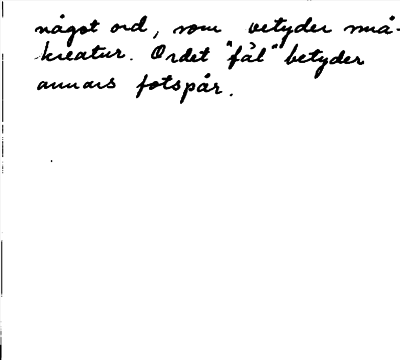 något ord, som betyder små-
kreatur. Ordet "fål" betyder
annars fotspår.